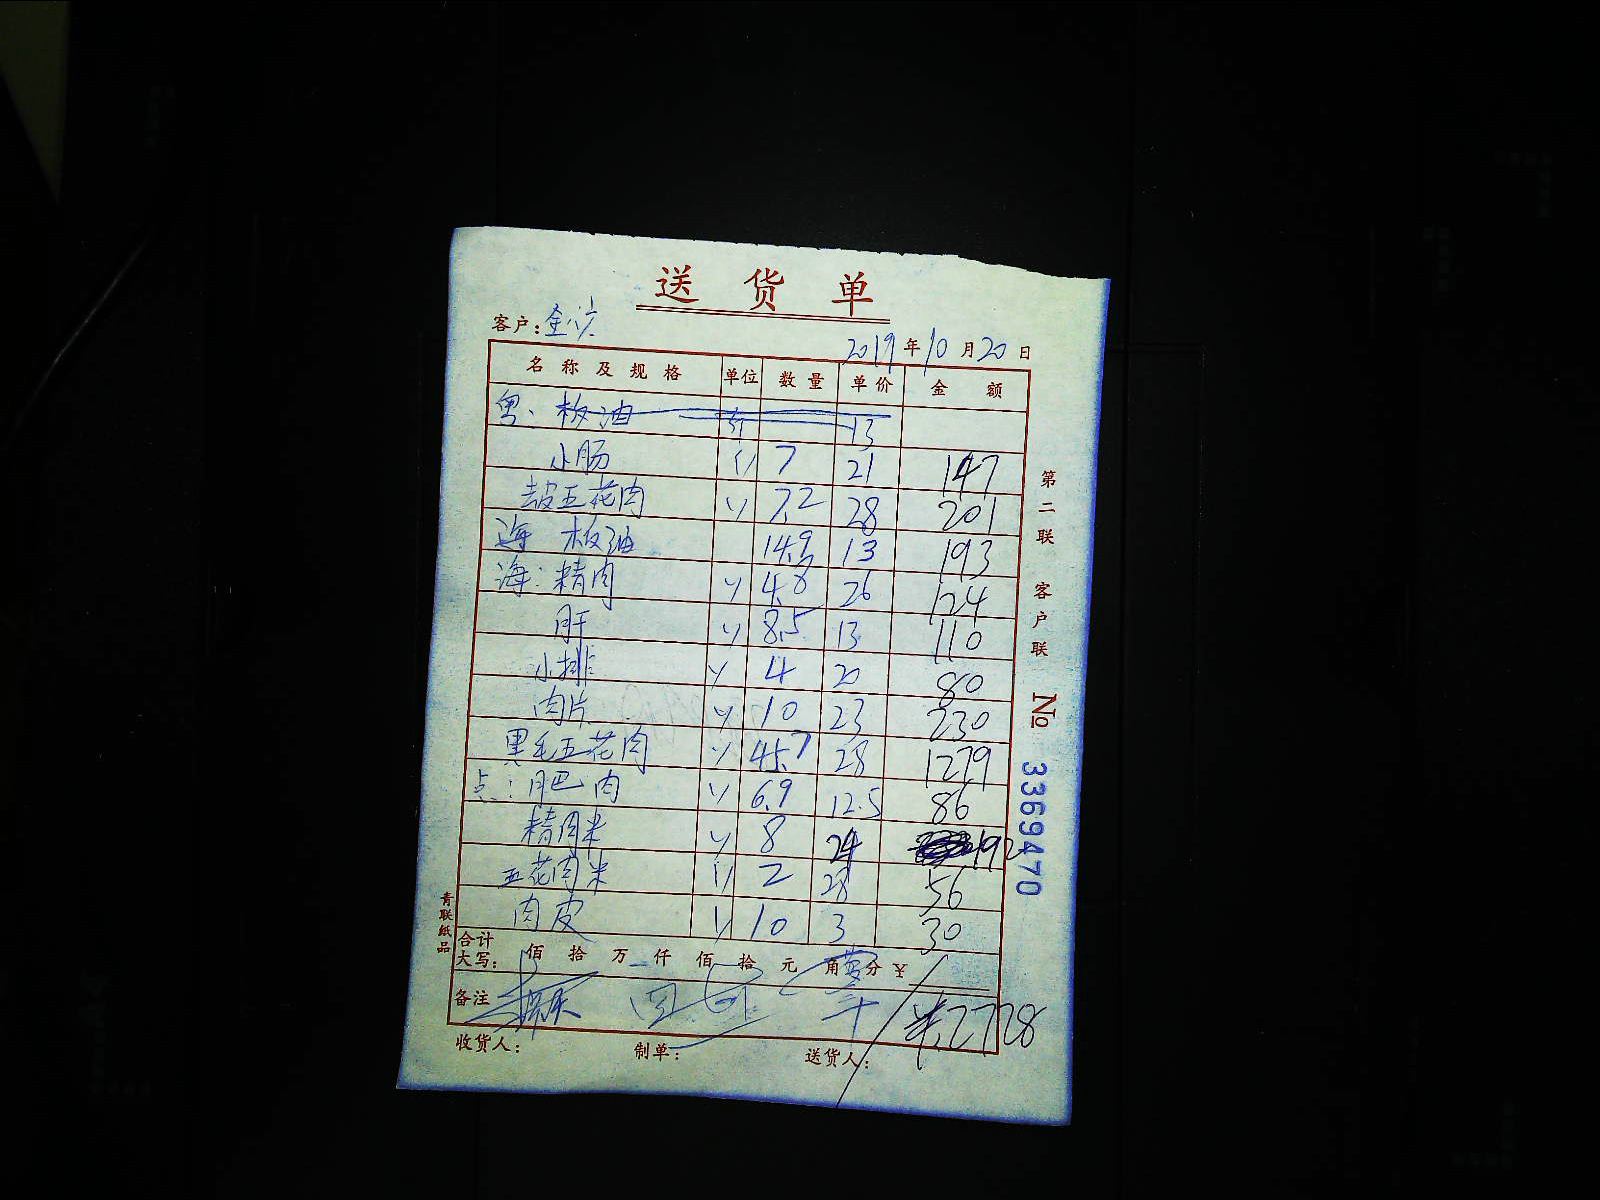 送货单
客户：金滨
2019年10月20日
名称及规格 单位 数量 单价 金额
粤：板油 斤 13
小肠 〃 7 21 147
去皮五花肉 〃 7.2 28 201
海 板油 14.9 13 193
海：精肉 〃 4.8 26 124
肝 〃 8.5 13 110
小排 〃 4 20 80
肉片 〃 10 23 230
黑毛五花肉 〃 45.7 28 1279
点：肥肉 〃 6.9 12.5 86
精肉米 〃 8 24 192
五花肉米 〃 2 28 56
肉皮 〃 10 3 30
合计大写： 佰 拾 万 仟 佰 拾 元 角 分 ¥
备注 2728
收货人： 制单： 送货人：
第二联 客户联 No 3369470
青联纸品